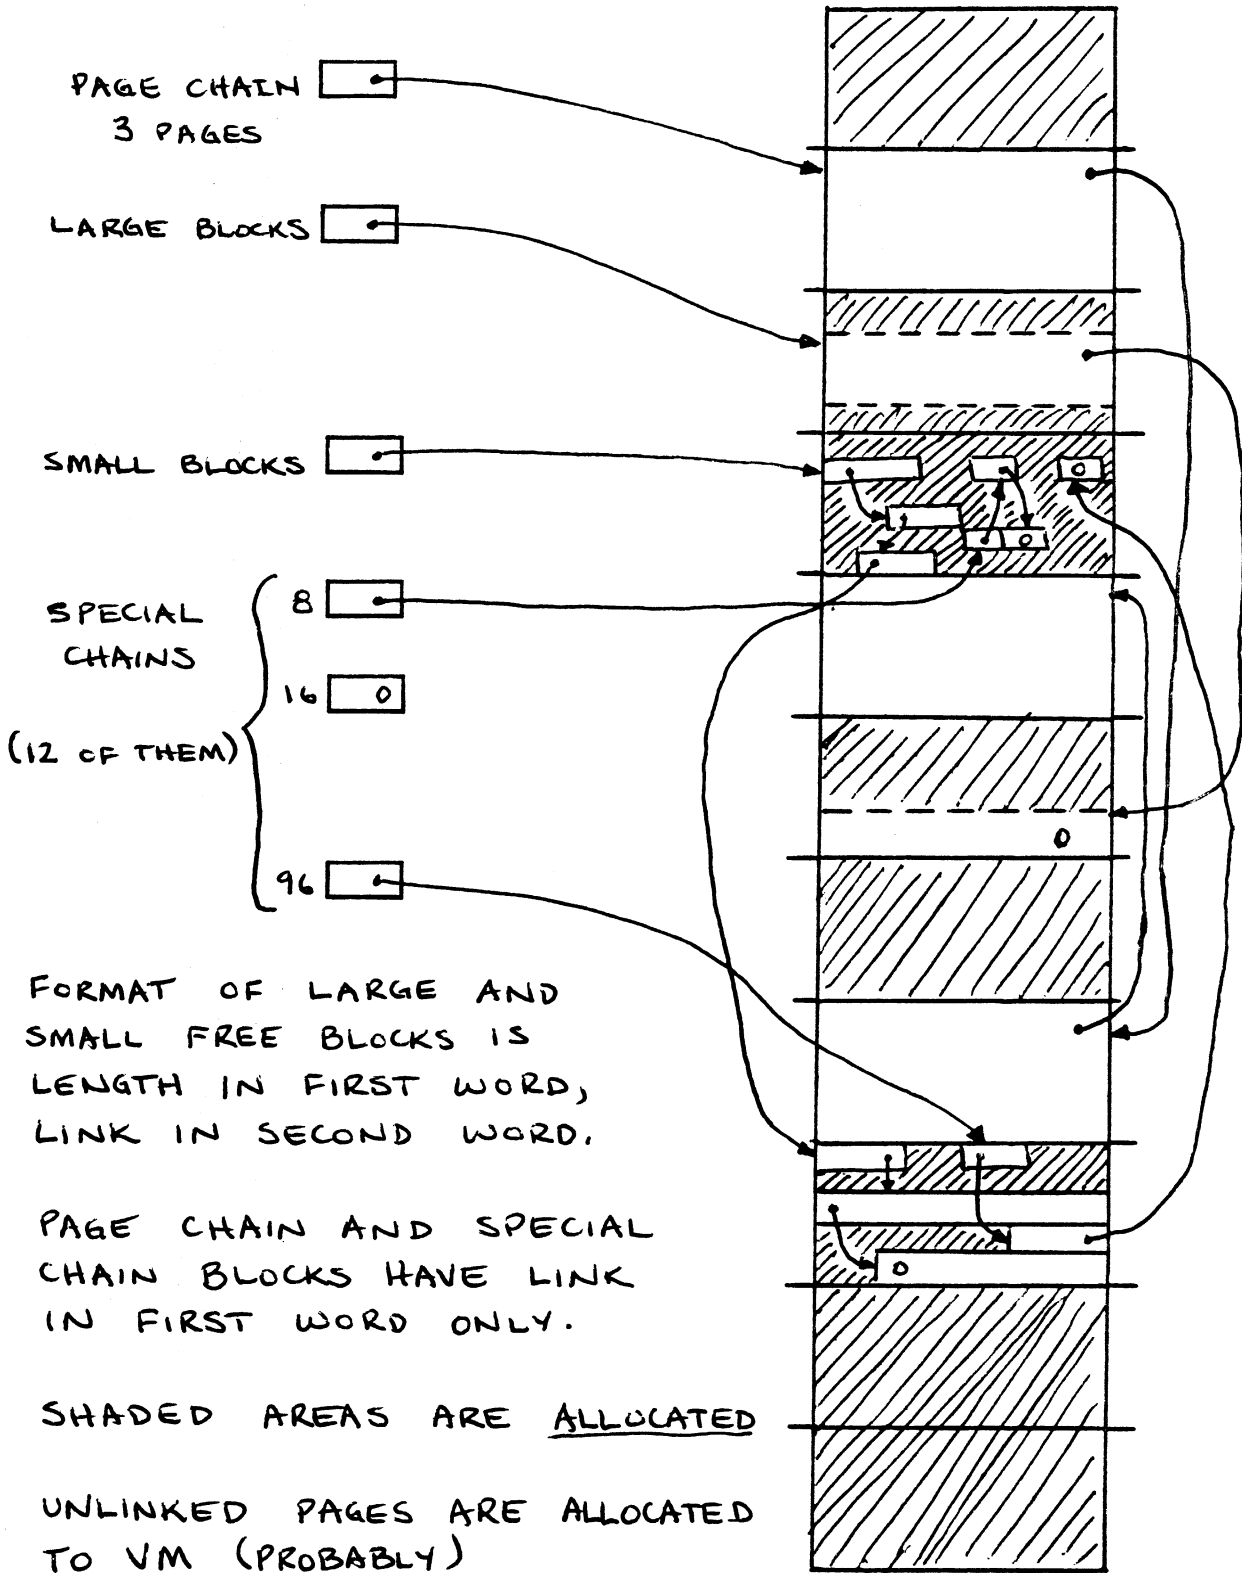 PAGE CHAIN
3 PAGES
LARGE BLOCKS
SMALL BLOCKS
SPECIAL
CHAINS
(12 OF THEM)
8
16 0
96
0
0
0
0
FORMAT OF LARGE AND
SMALL FREE BLOCKS IS
LENGTH IN FIRST WORD,
LINK IN SECOND WORD.
PAGE CHAIN AND SPECIAL
CHAIN BLOCKS HAVE LINK
IN FIRST WORD ONLY.
SHADED AREAS ARE ALLOCATED
UNLINKED PAGES ARE ALLOCATED
TO VM (PROBABLY)